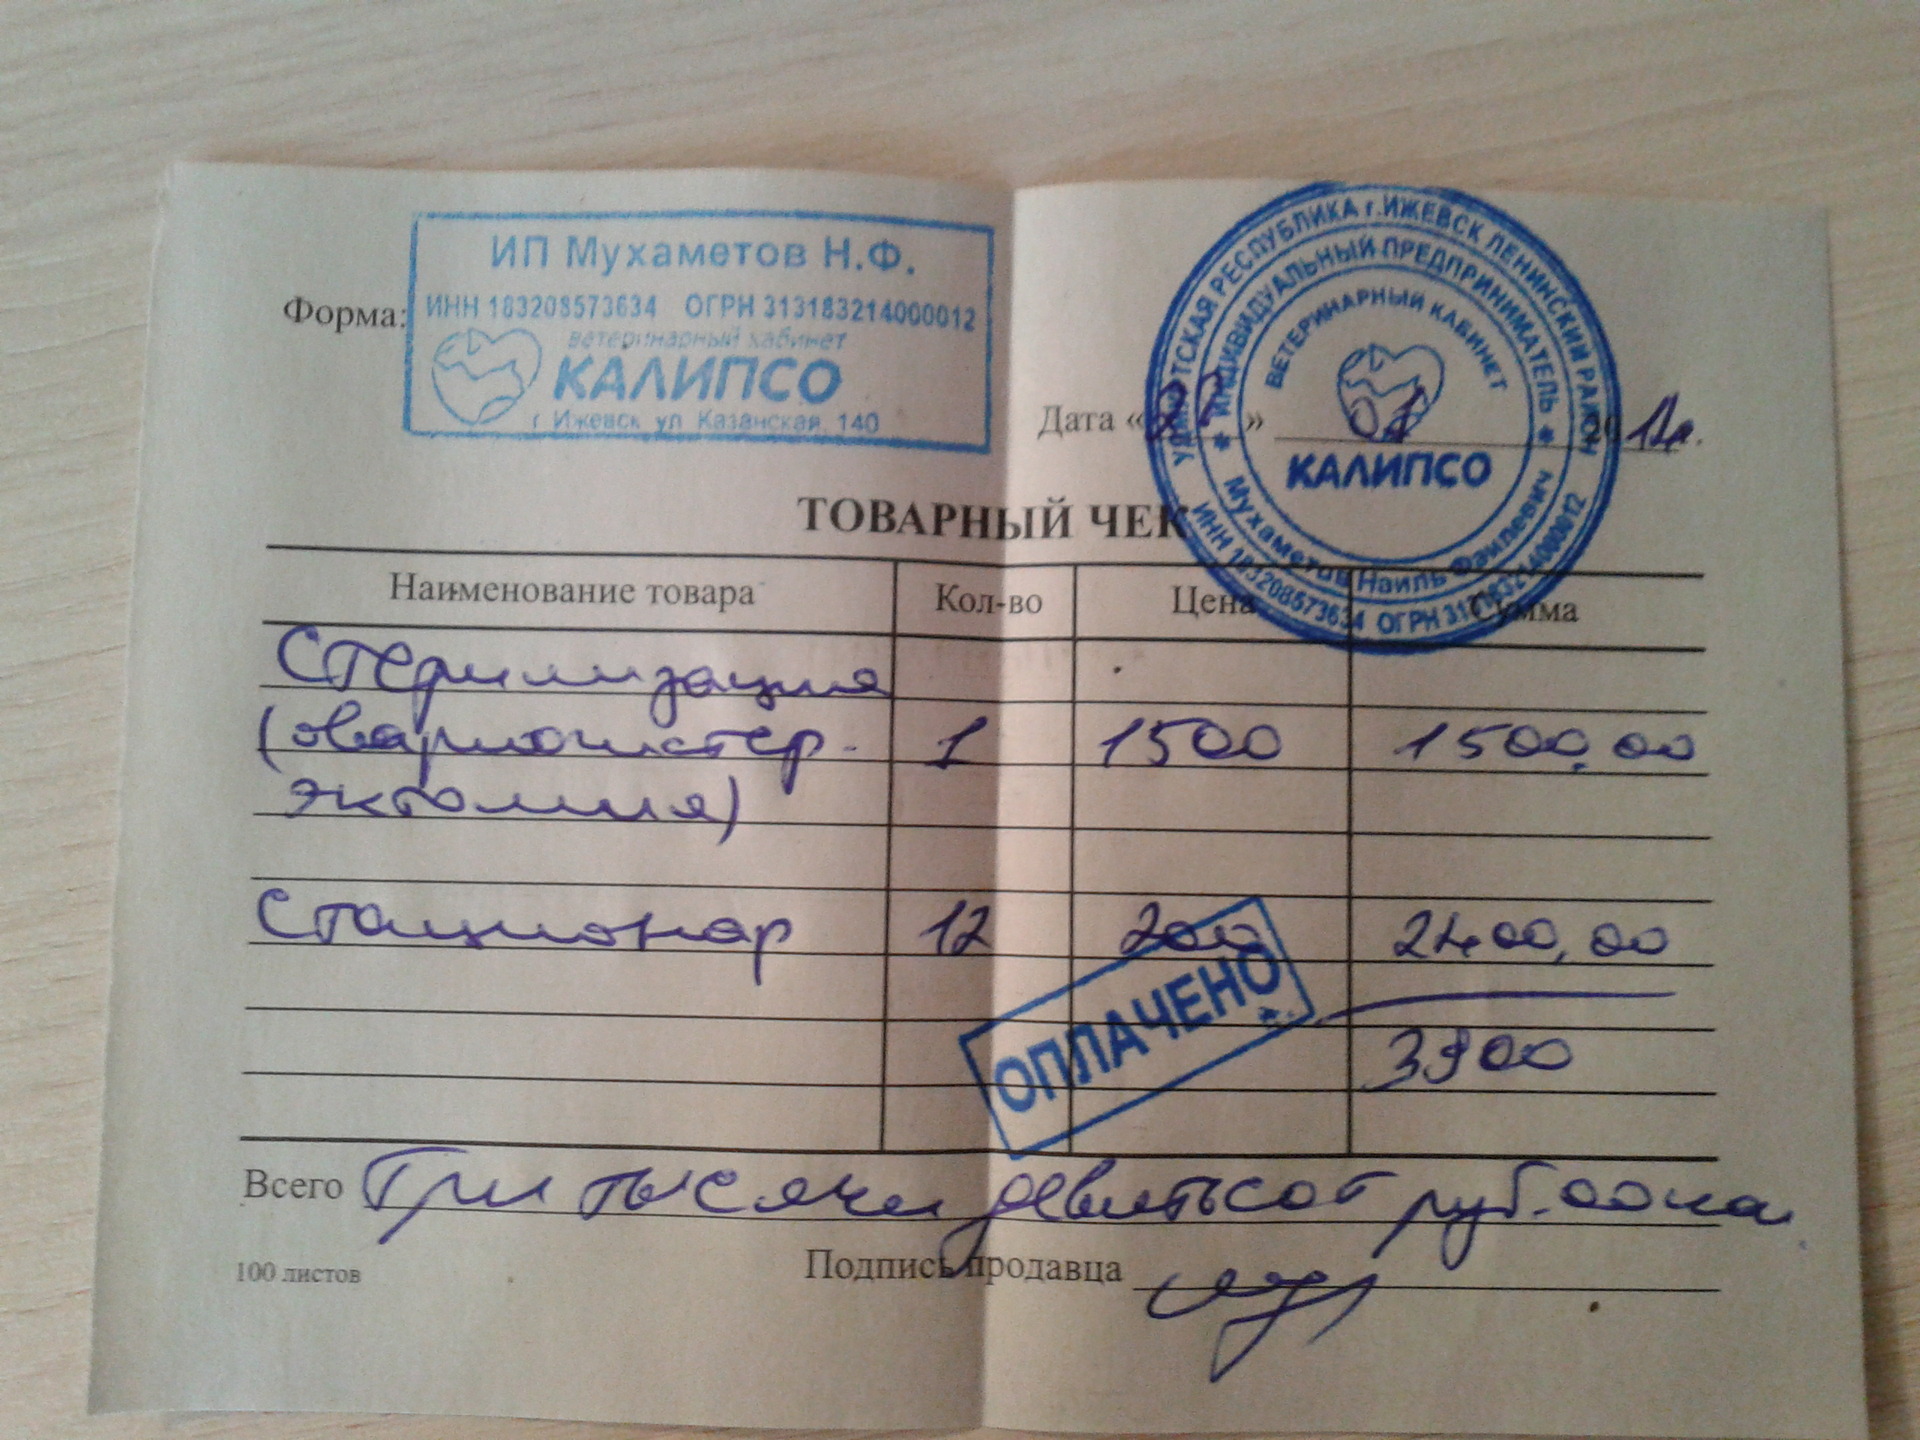 ИП Мухаметов Н.Ф.
ИНН 183208573634 ОГРН 313183214000012
ветеринарный кабинет
КАЛИПСО
г Ижевск ул Казанская, 140
Форма:
УДМУРТСКАЯ РЕСПУБЛИКА г.ИЖЕВСК ЛЕНИНСКИЙ РАЙОН
* ИНДИВИДУАЛЬНЫЙ ПРЕДПРИНИМАТЕЛЬ *
ВЕТЕРИНАРНЫЙ КАБИНЕТ
КАЛИПСО
Мухаметов Наиль Фаилевич
ИНН 183208573634 ОГРН 313183214000012
Дата « »
ТОВАРНЫЙ ЧЕК
Наименование товара Кол-во Цена Сумма
Стерилизация
(овариогистер- 1 1500 1500,00
эктомия)
Стационар 12 200 2400,00
ОПЛАЧЕНО
3900
Всего Три тысячи девятьсот руб. 00 коп
100 листов
Подпись продавца